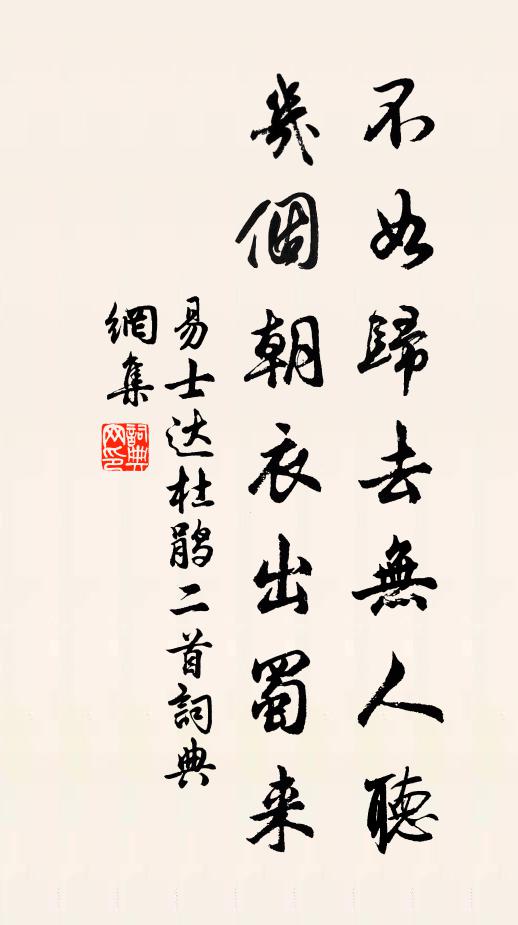 不如歸去無人聽
幾個朝衣出蜀来
易士达杜鹃二首詞典
網集
詞典
文印